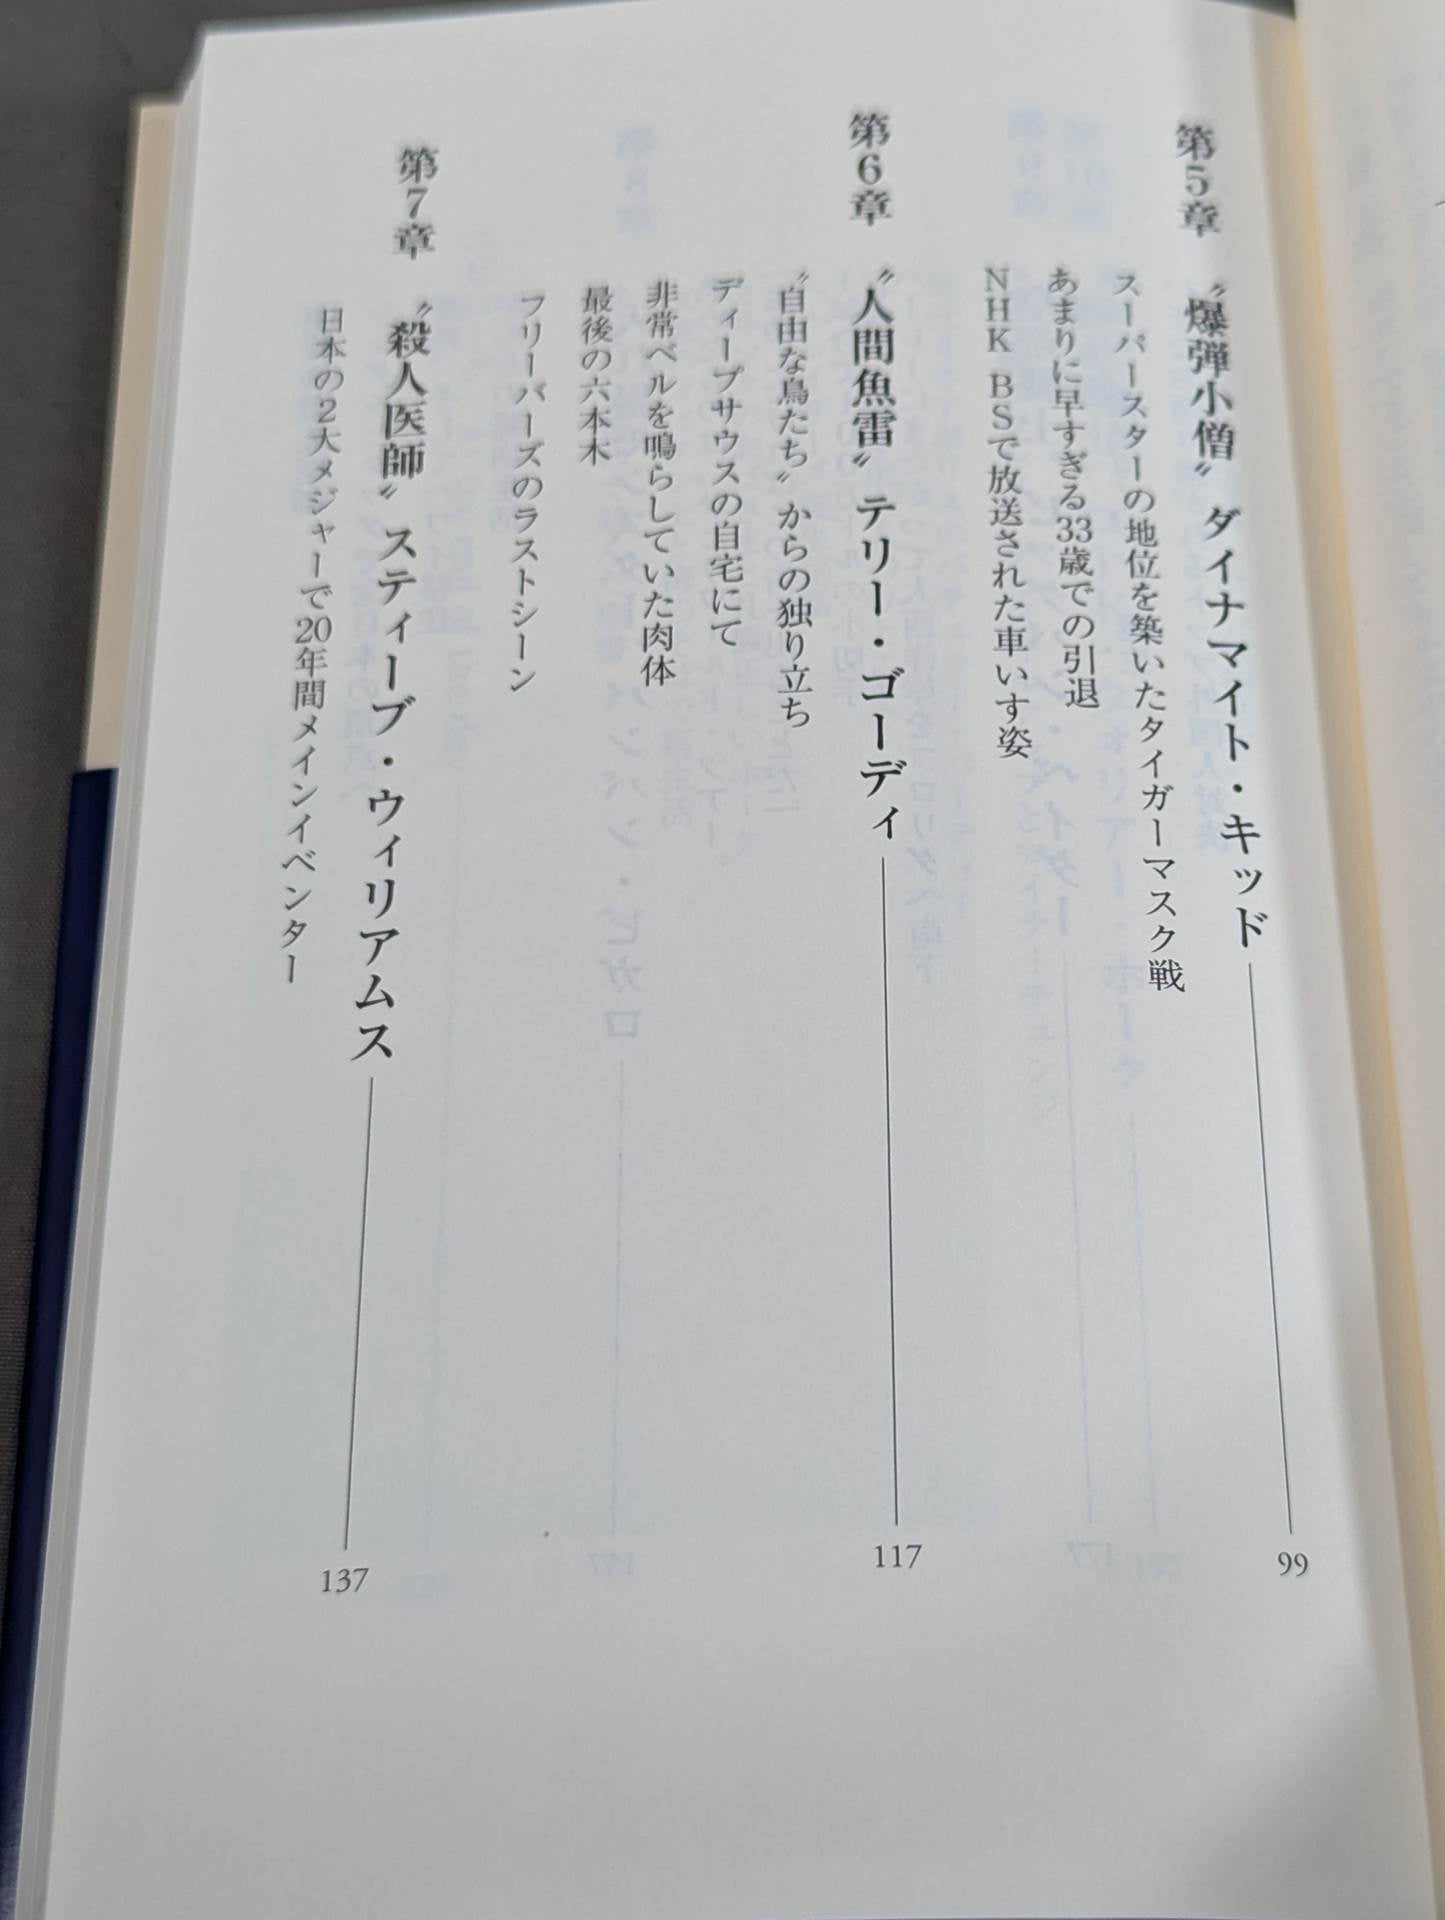 第5章 〝爆弾小僧〟 ダイナマイト・キッド 99
スーパースターの地位を築いたタイガーマスク戦
あまりに早すぎる33歳での引退
NHK BSで放送された車いす姿
第6章 〝人間魚雷〟 テリー・ゴーディ 117
〝自由な鳥たち〟からの独り立ち
ディープサウスの自宅にて
非常ベルを鳴らしていた肉体
最後の六本木
フリーバーズのラストシーン
第7章 〝殺人医師〟 スティーブ・ウィリアムス 137
日本の2大メジャーで20年間メインイベンター